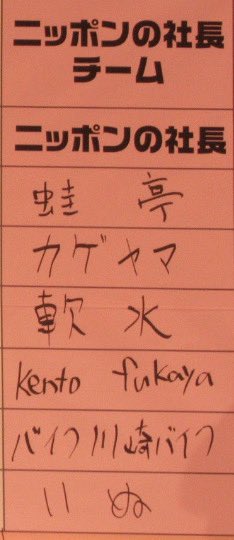 ニッポンの社長
チーム
ニッポンの社長
蛙亭
カゲヤマ
軟水
kento fukaya
バイク川崎バイク
いぬ